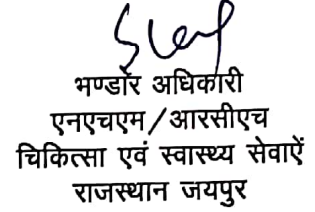 भण्डार अधिकारी
एनएचएम/आरसीएच
चिकित्सा एवं स्वास्थ्य सेवाऐं
राजस्थान जयपुर